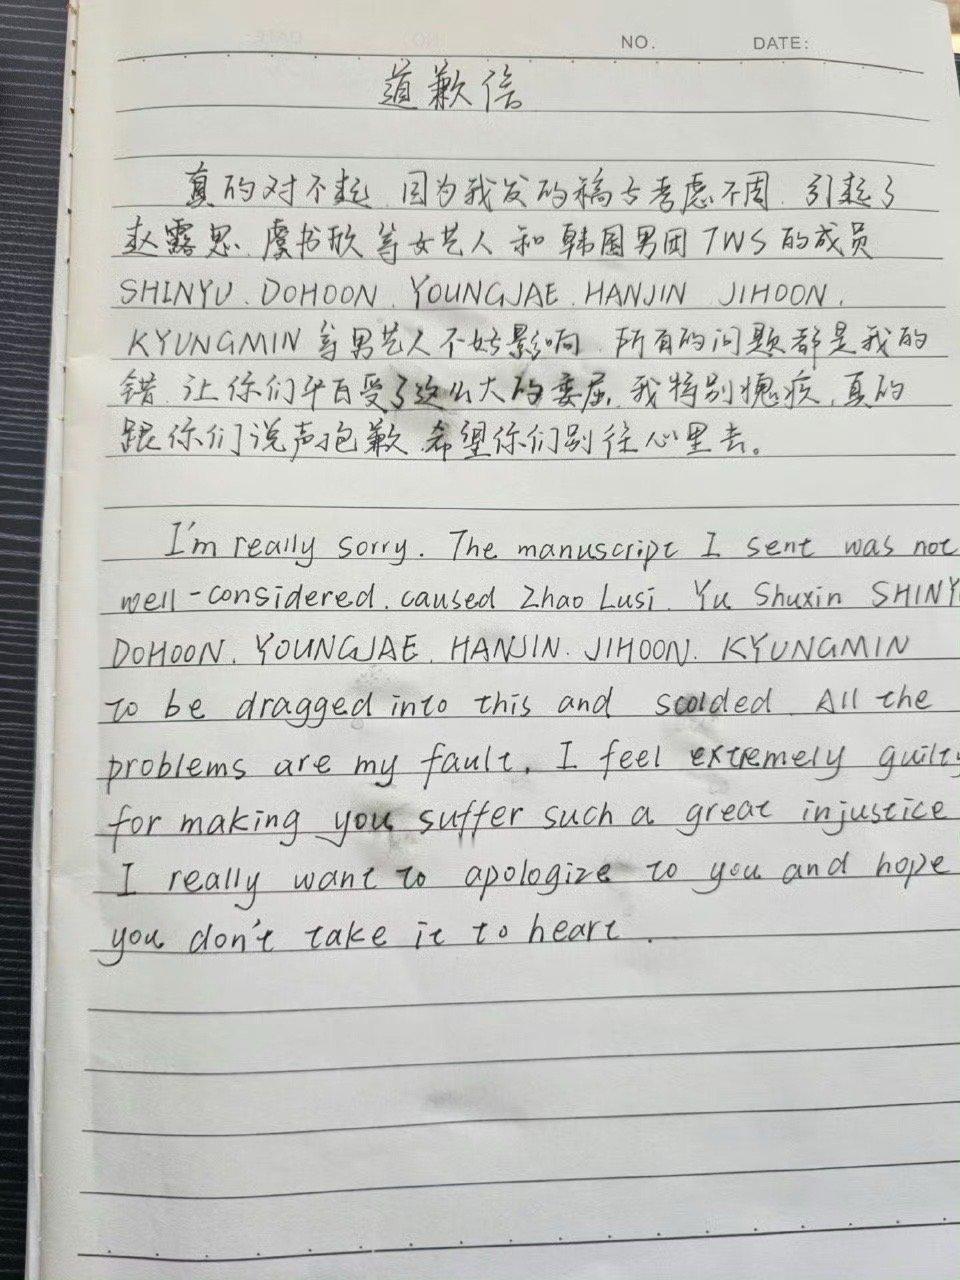 NO. DATE:
道歉信
真的对不起,因为我发的稿子考虑不周,引起了
赵露思、虞书欣等女艺人和韩国男团TWS的成员
SHINYU、DOHOON、YOUNGJAE、HANJIN、JIHOON、
KYUNGMIN等男艺人不好影响,所有的问题都是我的
错,让你们平白受了这么大的委屈,我特别愧疚,真的
跟你们说声抱歉,希望你们别往心里去。
I'm really sorry. The manuscript I sent was not
well-considered, caused Zhao Lusi, Yu Shuxin SHINY
DOHOON, YOUNGJAE, HANJIN, JIHOON, KYUNGMIN
to be dragged into this and scolded. All the
problems are my fault, I feel extremely guilty
for making you suffer such a great injustice
I really want to apologize to you and hope
you don't take it to heart.